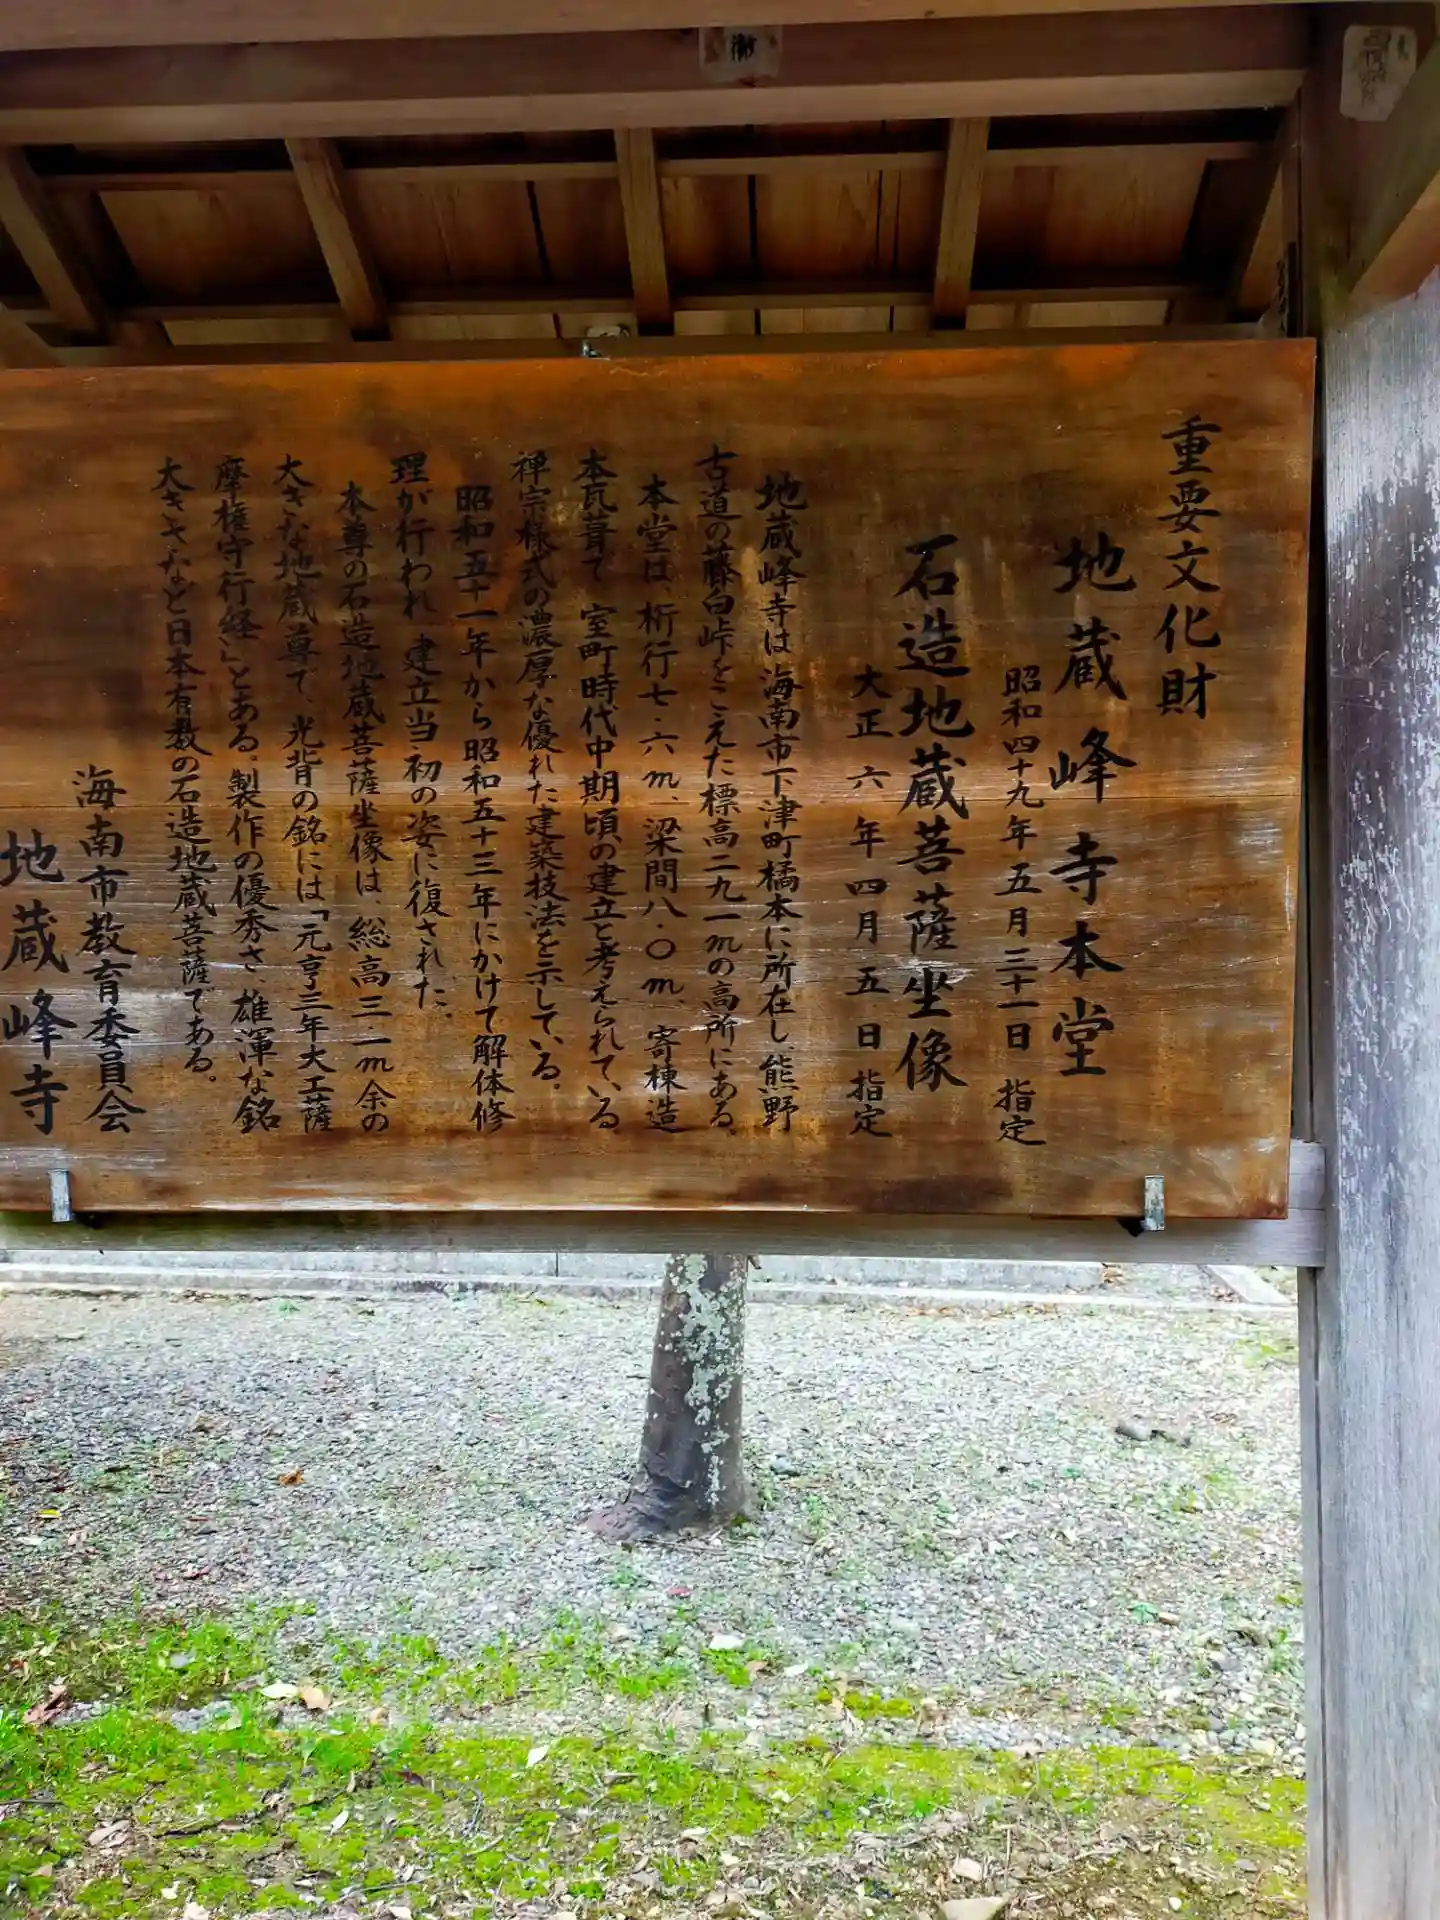 重要文化財
地蔵峰寺本堂
昭和四十九年五月三十一日 指定
石造地蔵菩薩坐像
大正六年四月五日 指定
地蔵峰寺は海南市下津町橘本に所在し、熊野
古道の藤白峠をこえた標高二九一mの高所にある。
本堂は、桁行七・六m、梁間八・〇m、寄棟造
本瓦葺で 室町時代中期頃の建立と考えられている
禅宗様式の濃厚な優れた建築技法を示している。
昭和五十一年から昭和五十三年にかけて解体修
理が行われ 建立当初の姿に復された。
本尊の石造地蔵菩薩坐像は、総高三・一m余の
大きな地蔵尊で、光背の銘には「元亨三年大工薩
摩権守行経」とある。製作の優秀さ、雄渾な銘
大きさなど日本有数の石造地蔵菩薩である。
海南市教育委員会
地蔵峰寺